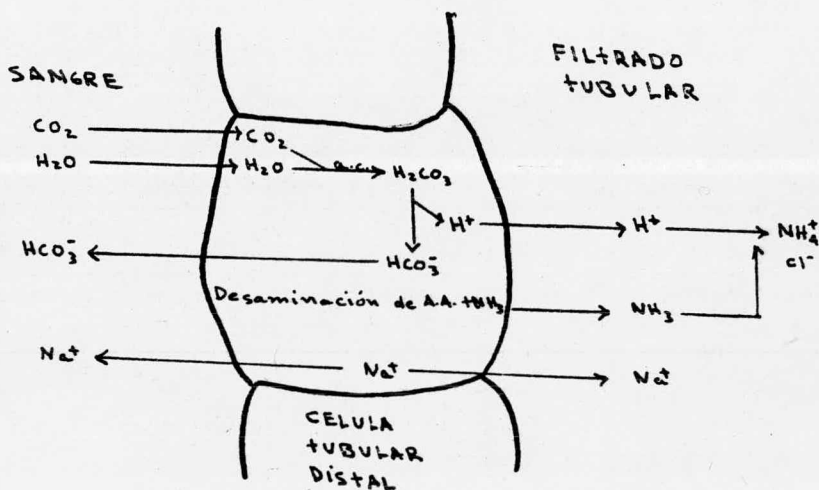 SANGRE
FILTRADO
TUBULAR
CO₂ CO₂
H₂O H₂O H₂CO₃
H⁺ H⁺ NH₄⁺
Cl⁻
HCO₃⁻ HCO₃⁻
Desaminación de A.A. NH₃ NH₃
Na⁺ Na⁺ Na⁺
CELULA
TUBULAR
DISTAL